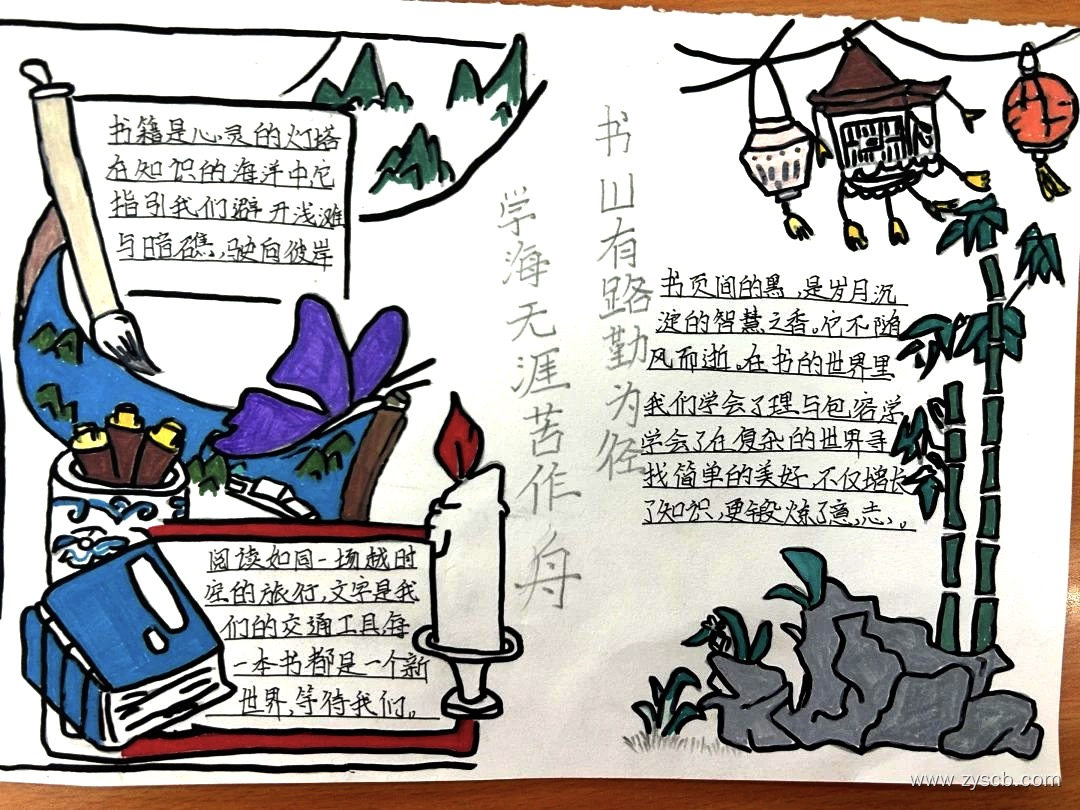 书籍是心灵的灯塔
在知识的海洋中它
指引我们避开浅滩
与暗礁,驶向彼岸
书山有路勤为径
学海无涯苦作舟
书页间的墨,是岁月沉
淀的智慧之香。它不随
风而逝。在书的世界里
我们学会了理与包容学
学会了在复杂的世界寻
找简单的美好,不仅增长
了知识,更锻炼了意志。
阅读如同一场越时
空的旅行,文字是我
们的交通工具每
一本书都是一个新
世界,等待我们。
www.zyscb.com